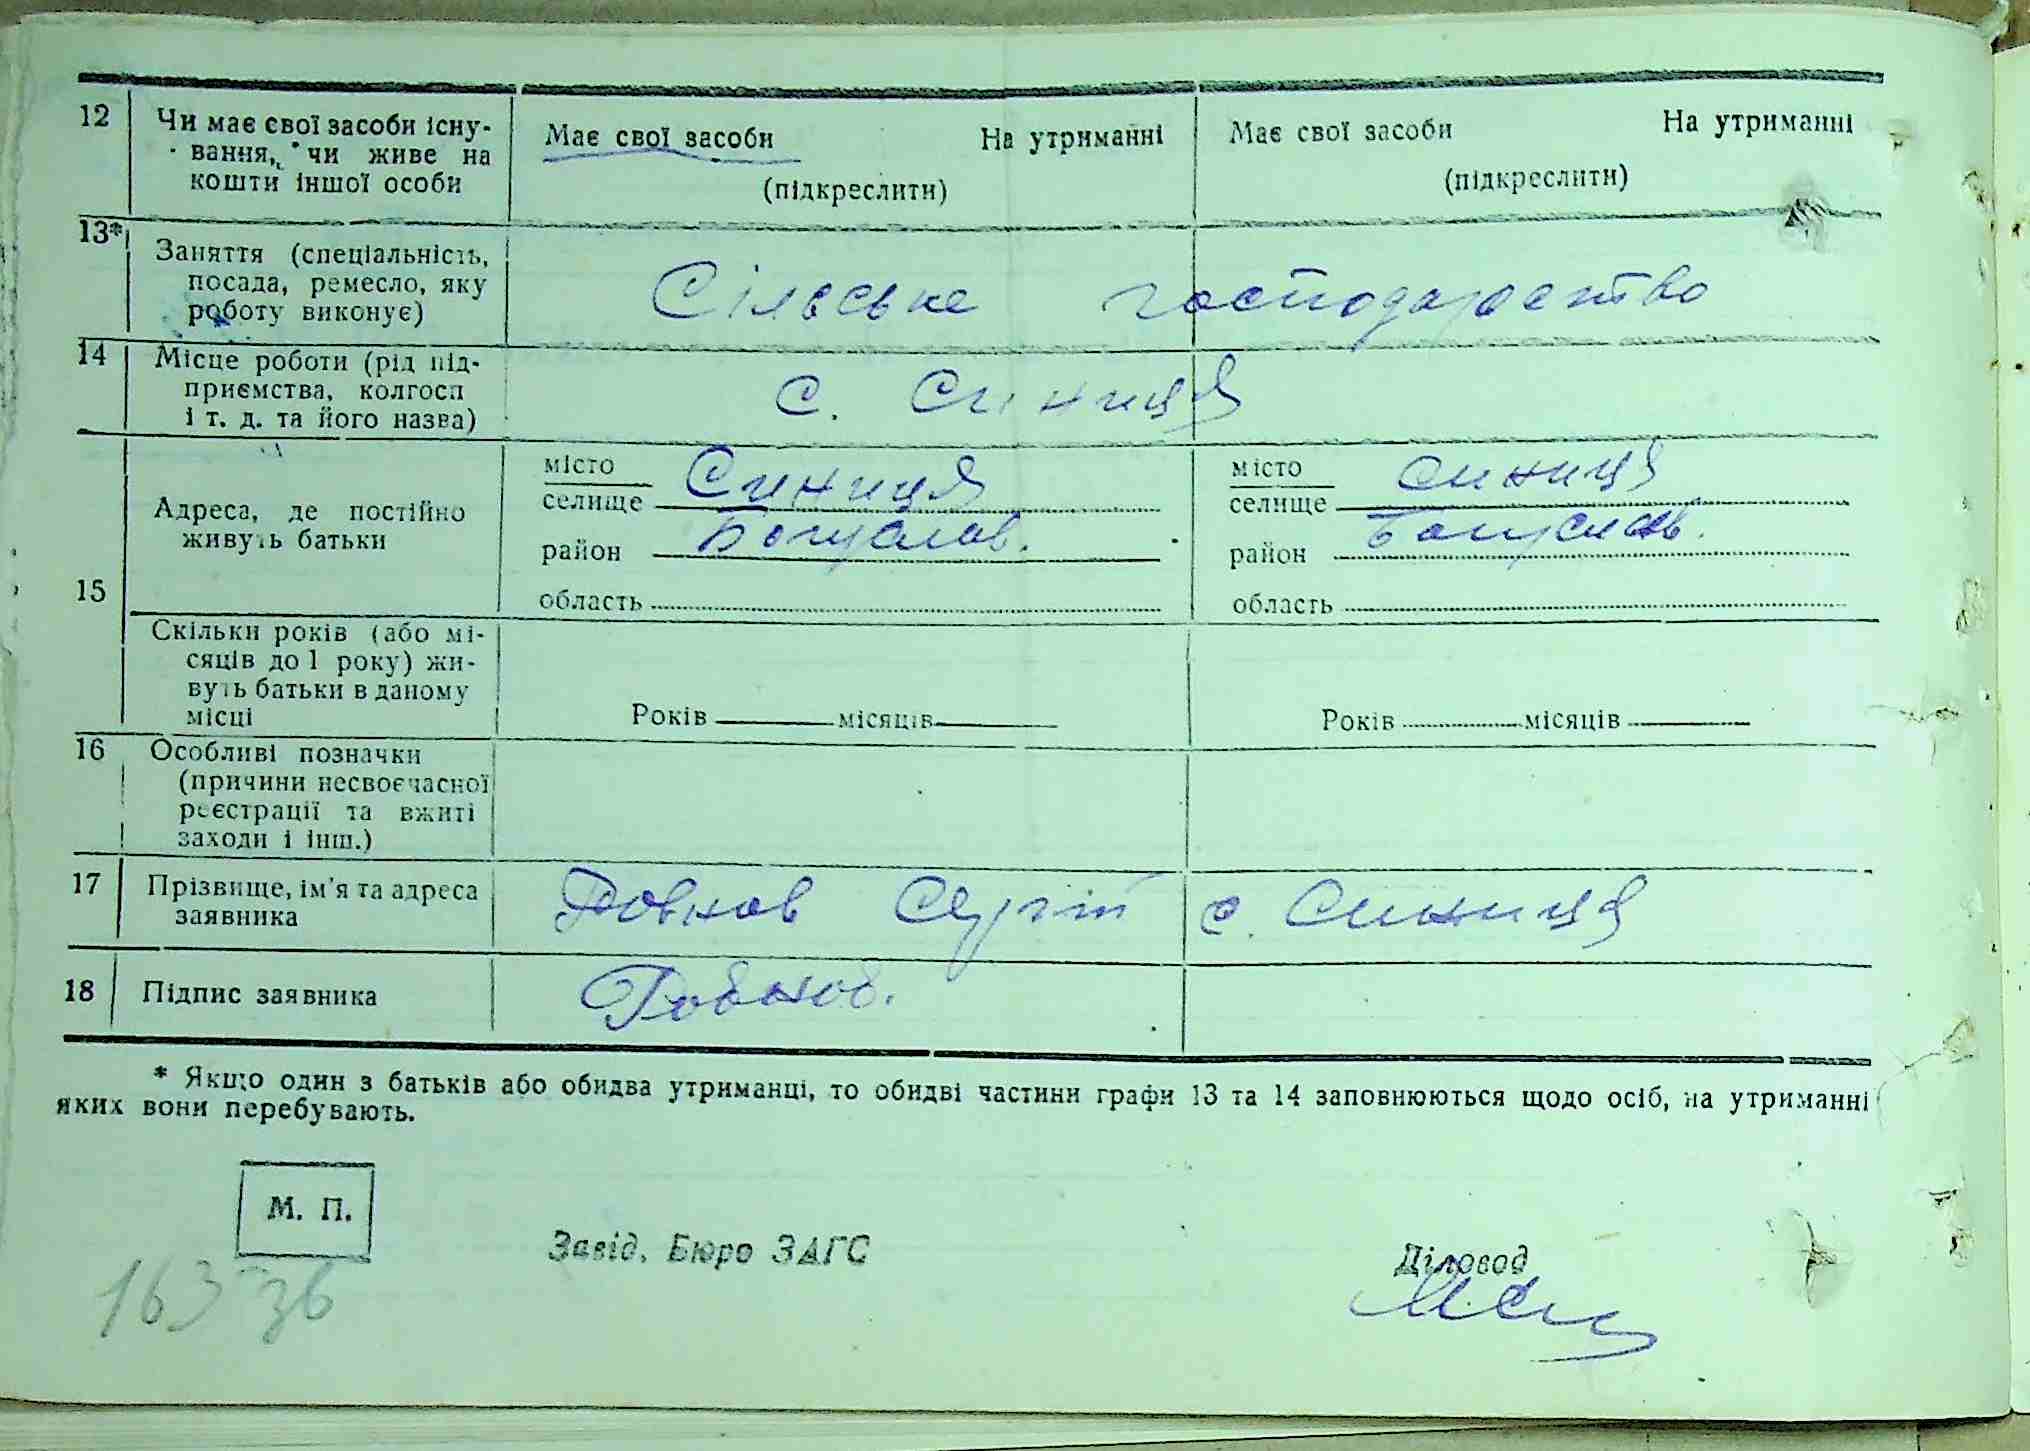 12 Чи має свої засоби існу- Має свої засоби На утриманні Має свої засоби На утриманні
вання, чи живе на
кошти іншої особи (підкреслити) (підкреслити)
13* Заняття (спеціальність,
посада, ремесло, яку Сільське господарство
роботу виконує)
14 Місце роботи (рід під-
приємства, колгосп с. Синиця
і т. д. та його назва)
місто місто
селище Синиця селище Синиця
15 Адреса, де постійно
живуть батьки район Богуслав. район Богуслав.
область область
Скільки років (або мі-
сяців до 1 року) жи-
вуть батьки в даному
місці Років місяців Років місяців
16 Особливі позначки
(причини несвоєчасної
реєстрації та вжиті
заходи і інш.)
17 Прізвище, ім'я та адреса
заявника Ровнов Сергій с. Синиця
18 Підпис заявника Ровнов.
* Якщо один з батьків або обидва утриманці, то обидві частини графи 13 та 14 заповнюються щодо осіб, на утриманні
яких вони перебувають.
М. П.
Завід. Бюро ЗАГС Діловод
163 зв